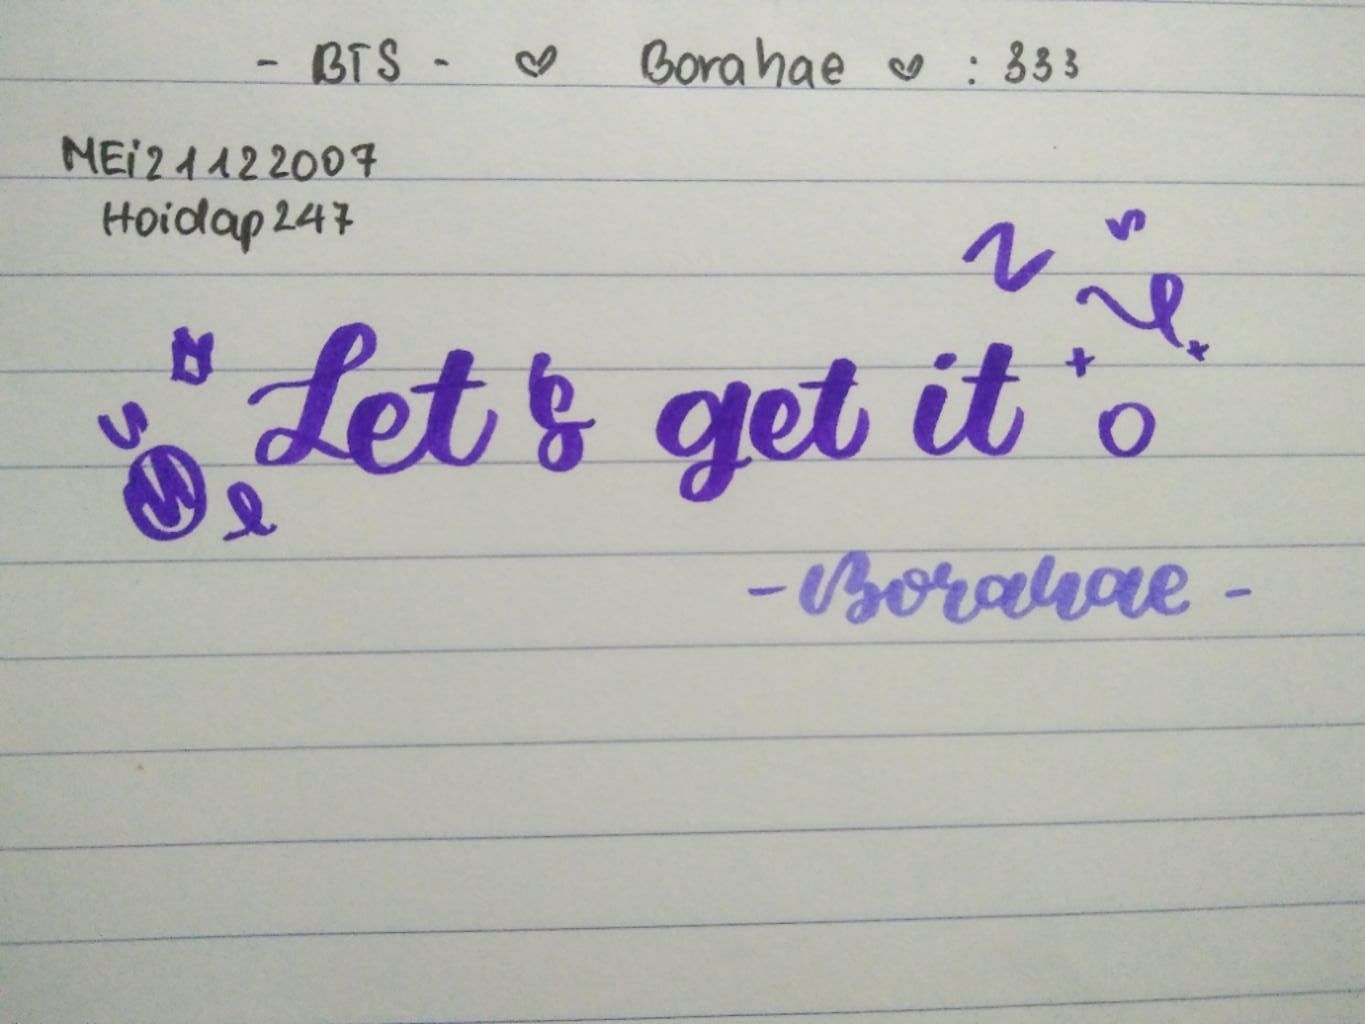 - BTS - ♡ Borahae ♡ : 333
MEi21122007
Hoidap247
Let's get it
- Borahae -